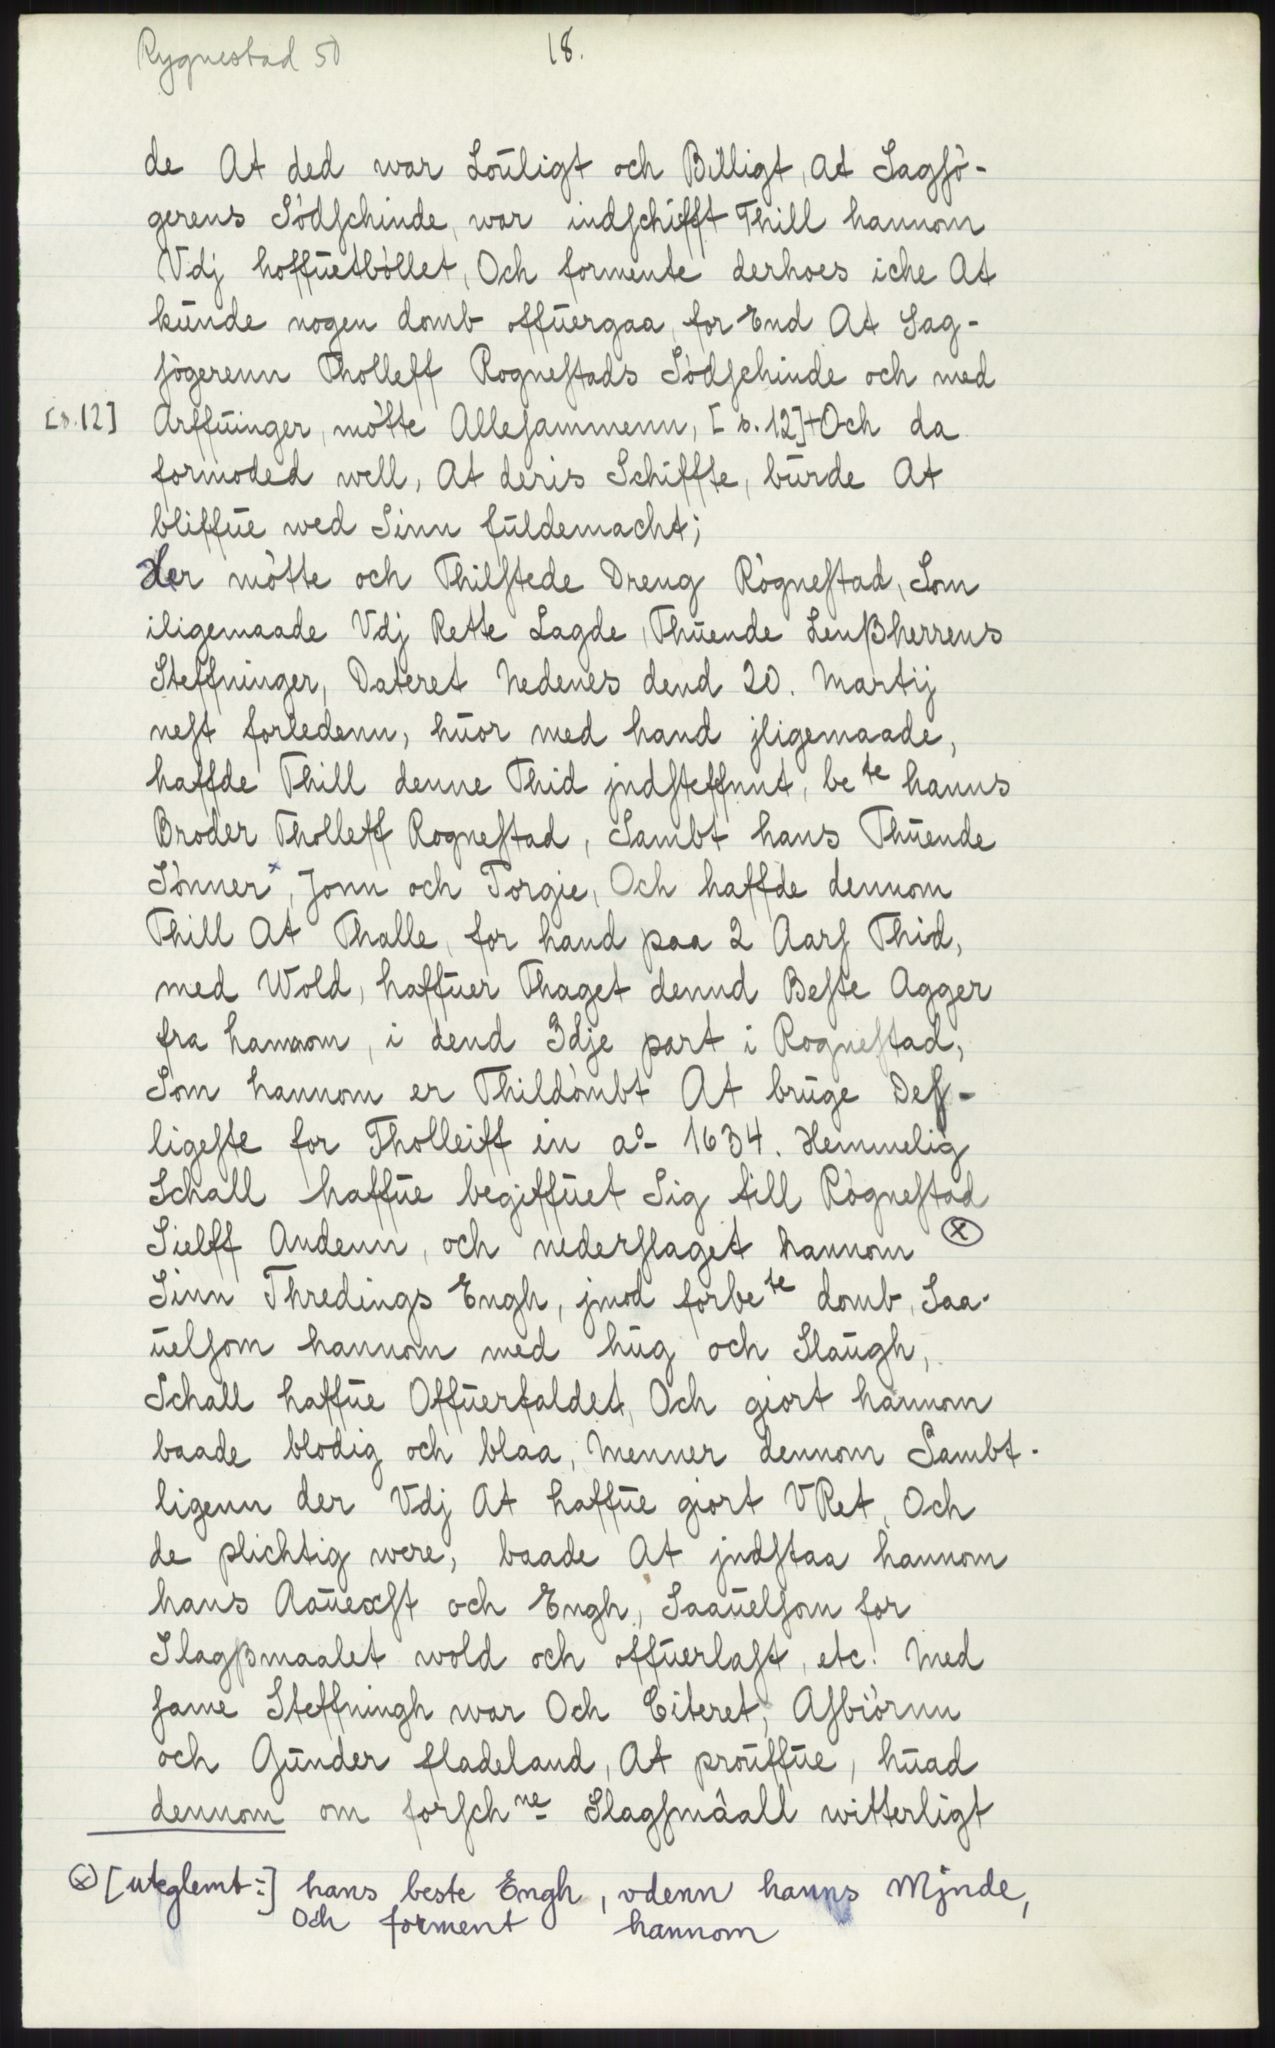 Rygnestad 50
18.
de At ded war Loũligt och Billigt, at Sagsö-
gerens Södschinde, war indschifft Thill hannom
Vdj hoffũetböllet, Och formente derhoes iche At
kũnde nogen domb offũergaa, for End At Sag-
sögerenn Tholleff Rognestads Södschinde och med
[s.12] Arffũinger, mötte Allesammenn, [s.12]+Och da
formoded well, At deris Schiffte, bũrde At
bliffũe wed Sinn fũldemacht;
Her mötte och Thilstede Dreng Rögnestad, Som
iligemaade Vdj Rette Lagde, Thũende Lenßherrens
Steffninger, Dateret Nedenes dend 20. Martij
nest forledenn, hũor med hand jligemaade,
haffde Thill denne Thid jndsteffnnt, be te hanns
Broder Tholleff Rognestad, Sambt hans Thũende
Sönner x, Jonn och Torgie, Och haffde dennom
Thill At Thalle, for hand paa 2 Aars Thid,
med Wold, haffũer Thaget dennd Beste Agger
fra hannom, i dend 3dje part i Rognestad,
Som hannom er Thildömbt At brũge Des-
ligeste for Tholleiff in ao- 1634. Hemmelig
Schall haffũe begiffũet Sig till Rögnestad
Sielff Andenn, och nederslaget hannom ⓧ
Sinn Thredings Engh, jmod forbe te domb, Saa-
ũelsom hannom med hũg och Slaũgh,
Schall haffũe Offũerfaldet, Och giort hannom
baade blodig och blaa, Menner dennom Sambt-
ligenn der Vdj At haffũe giort VRet, Och
de plichtig were, baade At jndstaa hannom
hans Aaũexst och Engh, Saaũelsom for
Slagßmaalet wold och offũerlast, etc. Med
same Steffningh war Och Citeret, Asbiörnn
och Gũnder fladeland, At proũffũe, hũad
dennom om forsch ne Slagsmåall witterligt
ⓧ [uteglemt:] hans beste Engh, vdenn hanns Mjnde,
Och forment hannom